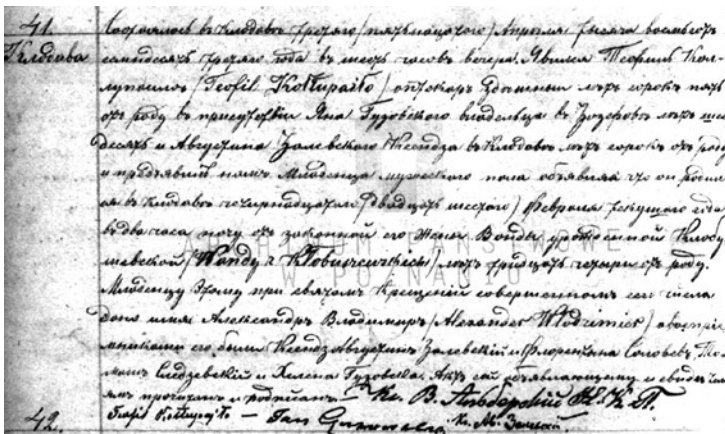 41.
Клодава
Состоялось въ Клодавѣ третяго /пятьнацатого/ Апрѣля тысяча восемьсотъ
семидесятъ третяго года въ шесть часовъ вечера. Явился Теофилъ Кол-
лупайло /Teofil Kołłupajło/ аптекарь лѣтъ сорокъ пять
отъ роду въ присутствіи Яна Гузовского владельца въ Юзефовѣ лѣтъ шес-
десятъ и Августина Залевского Ксендза въ Клодавѣ лѣтъ сорокъ отъ роду
и предъявилъ намъ Младенца мужеского пола объявляя что онъ родил-
ся въ Клодавѣ четырнадцатого /двадцать шестого/ Февраля текущого года
въ два часа ночу отъ законной его Жены Ванды урожденной Клобу-
шевской /Wandy z Kłobuszewskich/ лѣтъ тридцать четыри отъ роду.
Младенцу Этому при святомъ Крещеніи совершенномъ сего числа
дано имя Александръ Владимиръ /Alexander Włodzimierz/ а воспрі-
емниками его были Ксендзъ Августинъ Залевскій и Флорентина Соловьевъ, То-
машъ Следзевскій и Хелена Гузовска. Актъ сей объявляющему и свидѣте-
лямъ прочитанъ и подписанъ. — Кс. В. А. К. П.
Teofil Kołłupajło — Jan Guzowski. Кс. Ав. Залевскій.
42.
ARCHIWUM PAŃSTWOWE
W POZNANIU